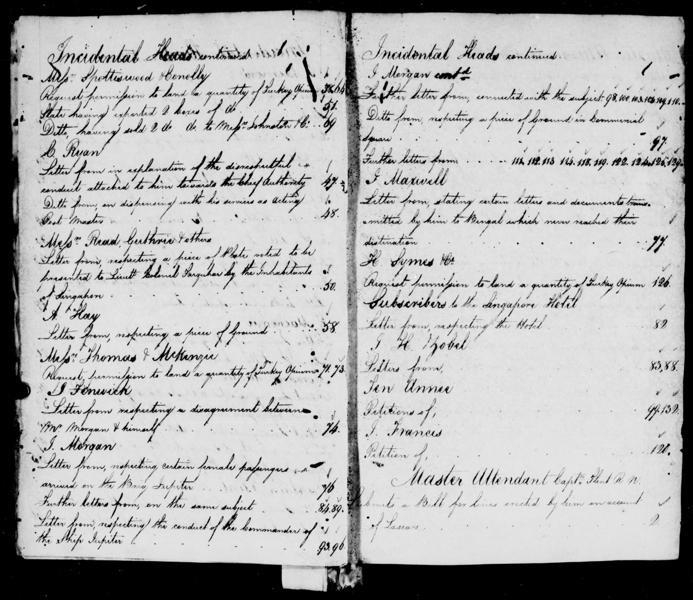 Incidental Heads continued
Messrs. Spottiswood & Conolly
Request permission to land a quantity of Turkey Opium
State having exported 2 boxes of do. 51.
Ditto having sold 2 do. do. to Messrs. Johnston & Co. 69
C. Ryan
Letter from in explanation of the disrespectful
conduct attached to him towards the Chief Authority 47.
Ditto from, on dispensing with his services as Acting
Post Master 48.
Messrs. Read, Guthrie & others
Letter from, respecting a piece of Plate voted to be
presented to Lieutt. Colonel Farquhar by the Inhabitants
of Singapore 50.
A. Hay
Letter from, respecting a piece of Ground 58
Messrs. Thomas & McKinzie
Request permission to land a quantity of Turkey Opium 71. 73.
J. Fenwick
Letter from respecting a disagreement between
Mr. Morgan & himself 74.
J. Morgan
Letter from, respecting certain female passengers
arrived on the Brig Jupiter 76
Further letters from, on the same subject 84. 89.
Letter from, respecting the conduct of the Commander of
the Ship Jupiter 93. 96
Incidental Heads continued
J. Morgan contd.
Further letter from, connected with the subject
Ditto from, respecting a piece of Ground in Commercial
Square 97.
Further letters from
J. Maxwell
Letter from, stating certain letters and documents trans
mitted by him to Bengal which never reached their
distination 77.
H. Symes & Co.
Request permission to land a quantity of Turkey Opium 126.
Subscribers to the Singapore Hotel
Letter from, respecting the Hotel 82.
J. H. Zobel
Letters from, 83, 88.
Sen Unnee
Petitions of, 94. 132.
J. Francis
Petition of, 120.
Master Attendant Captn. Flint R. N.
Submits a Bill for Lines erected by him on account
of Lascars 2.